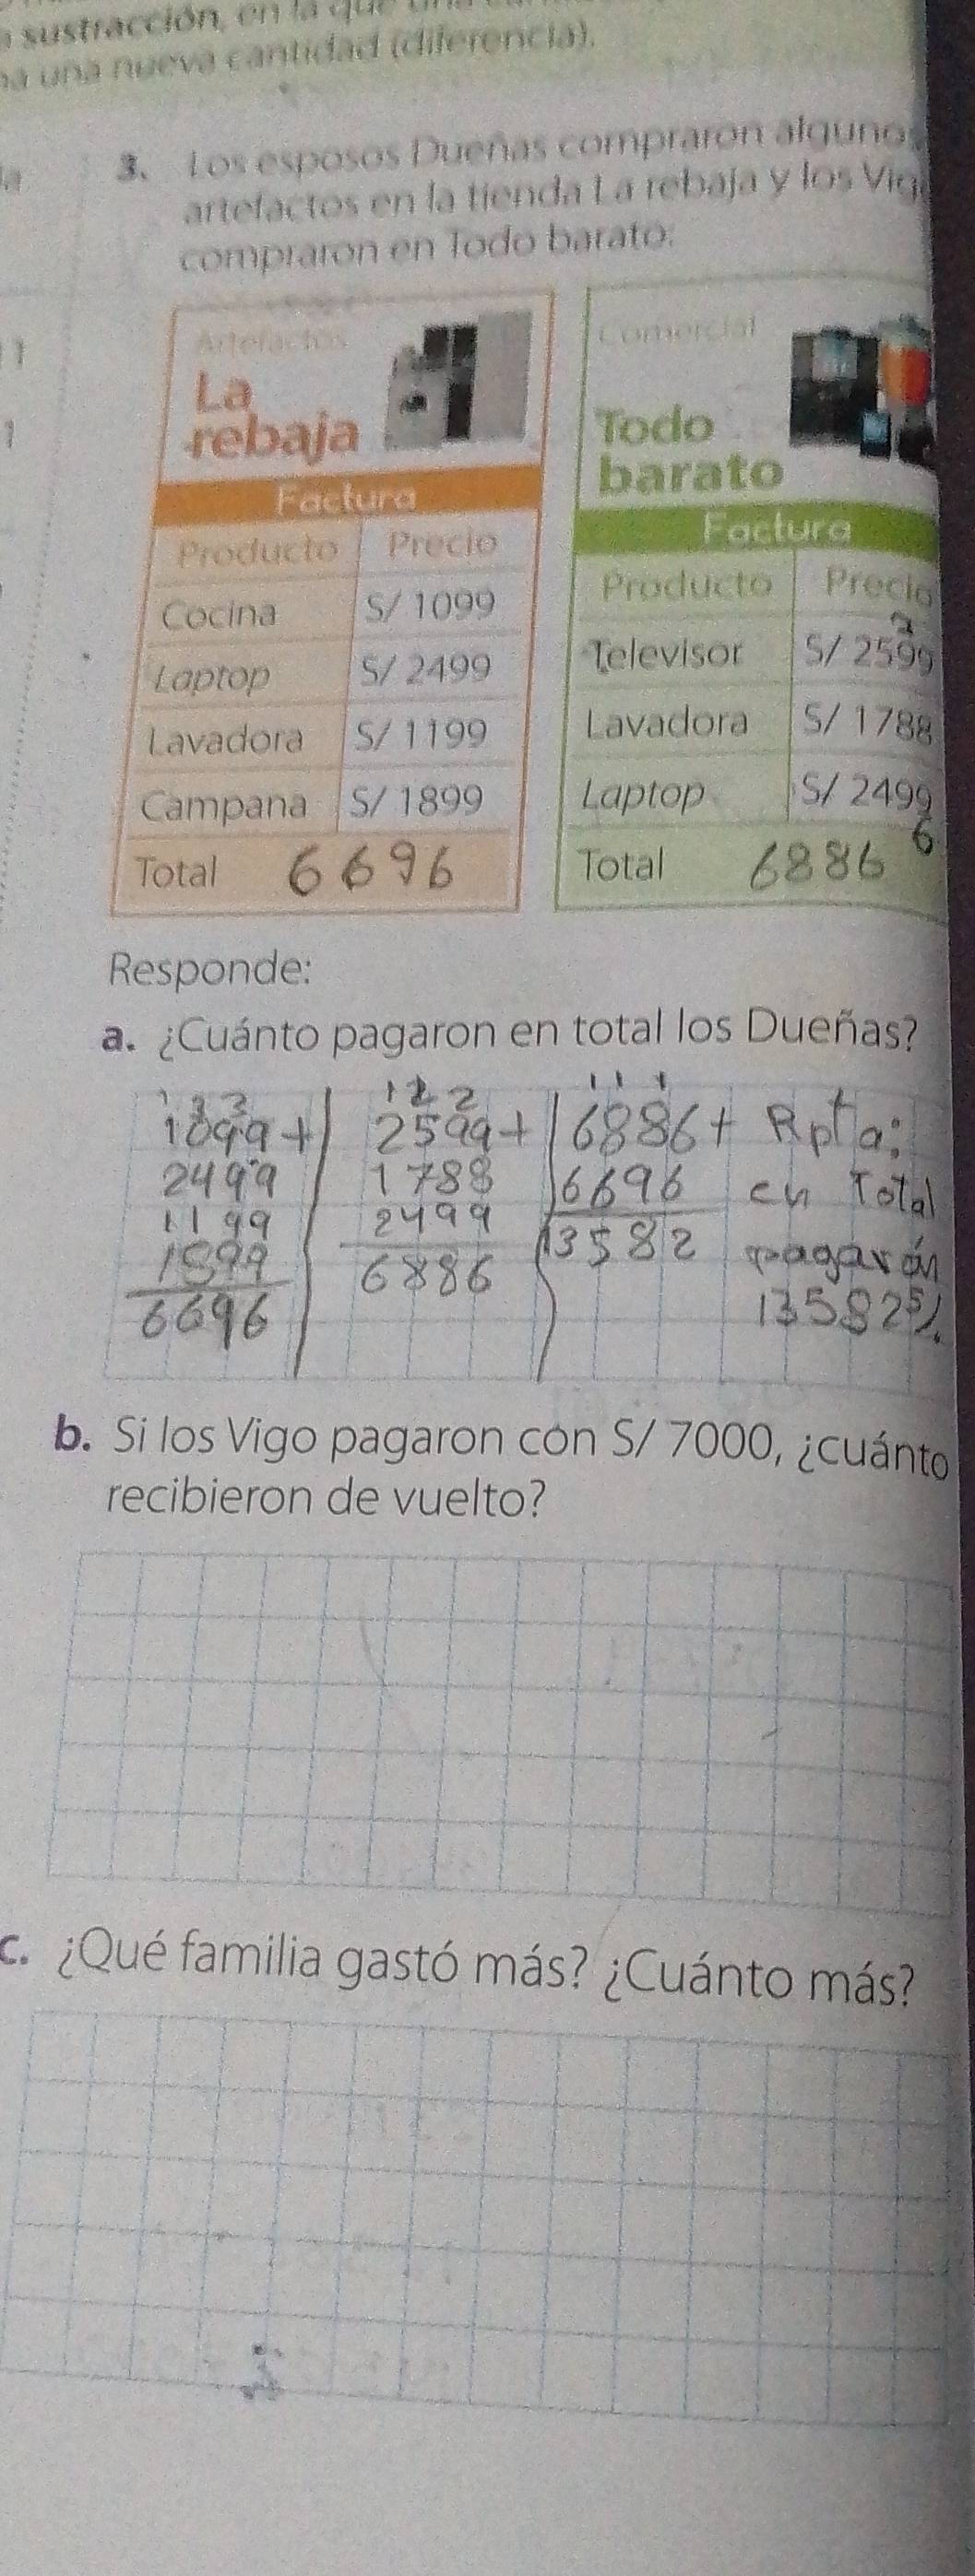 sustracción, en la que una
una nueva cantidad (diferencia).
3. Los esposos Dueñas compraron algunos
artefactos en la tienda La rebaja y los Vig
compraron en Todo barato:
Artefactos
La
rebaja
Factura
Producto Precio
Cocina S/ 1099
Laptop S/ 2499
Lavadora S/ 1199
Campana S/ 1899
Total 6696
Comercial
Todo
barato
Factura
Producto Precio
Televisor S/ 2599
Lavadora S/ 1788
Laptop S/ 2499
6
Total 6886
Responde:
a. ¿Cuánto pagaron en total los Dueñas?
1099+
2499
1199
1899
6696
2599+
1788
2499
6886
1 1 1
6886+
6696
13582
Rpta:
en Total
pagarón
13582 S/.
b. Si los Vigo pagaron con S/ 7000, ¿cuánto
recibieron de vuelto?
c. ¿Qué familia gastó más? ¿Cuánto más?